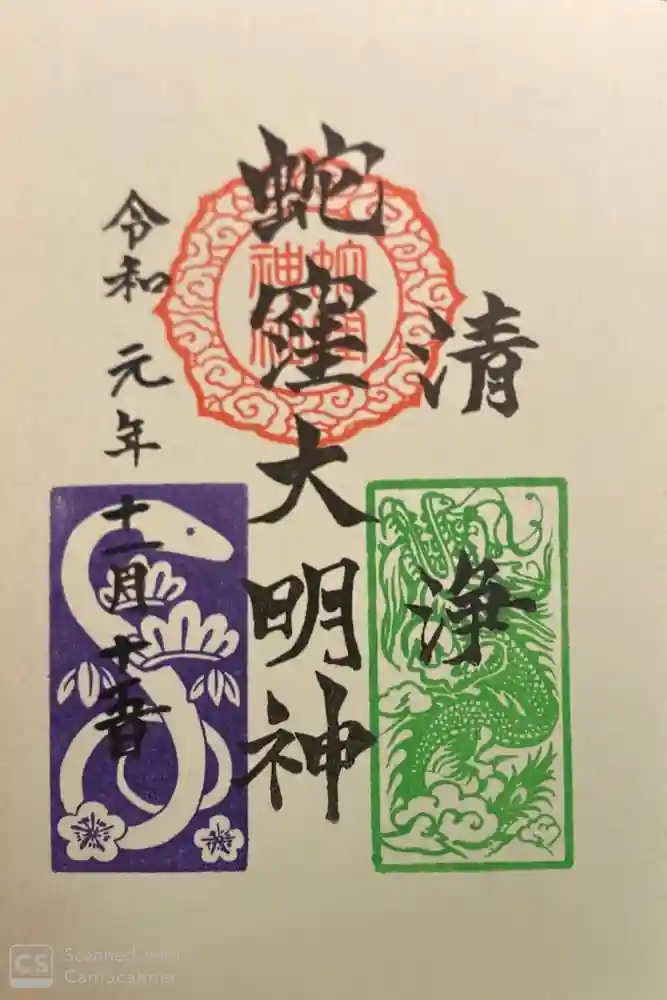 清浄
蛇窪大明神
蛇窪神社
令和元年十一月十五日
Scanned with
CamScanner
CS